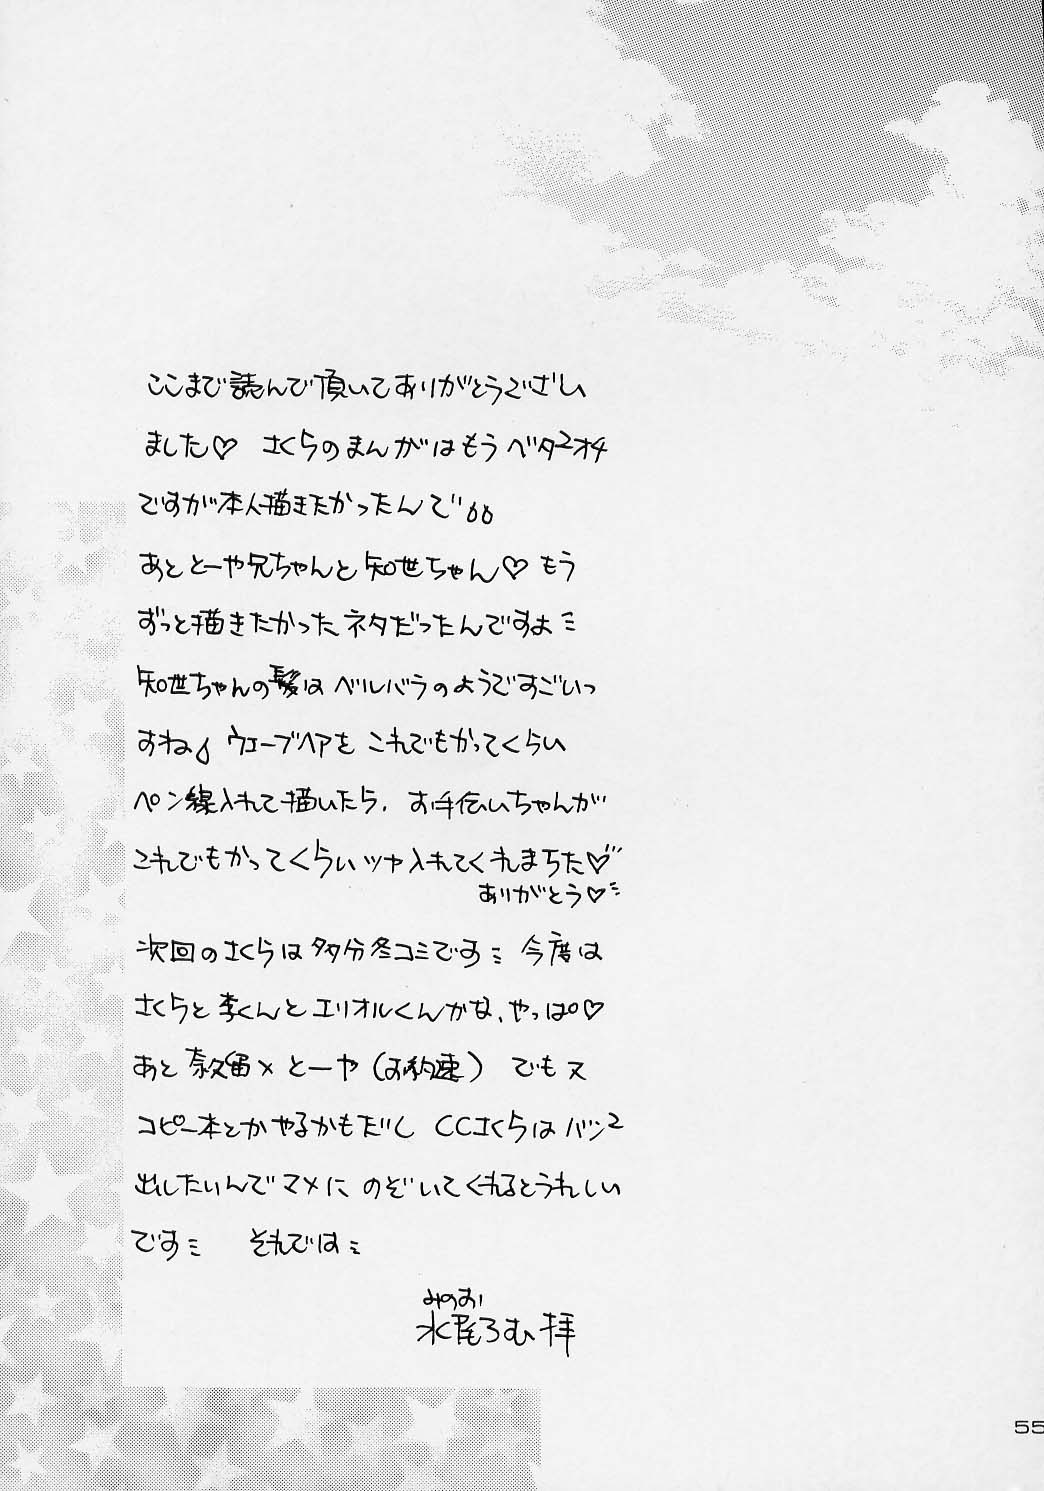 ここまで読んで頂いてありがとうござい
ました♡ さくらのまんがはもうベタ2オチ
ですが本人描きたかったんで"
あととーや兄ちゃんと知世ちゃん♡ もう
ずっと描きたかったネタだったんですよミ
知世ちゃんの髪はベルバラのようですごいっ
すね ウェーブヘアをこれでもかってくらい
ペン線入れて描いたら、お手伝いちゃんが
これでもかってくらいツヤ入れてくれまちた♡"
ありがとう♡ミ
次回のさくらは多分冬コミですミ 今度は
さくらと李くんとエリオルくんかな、やっぱ♡
あと奈久留×とーや(お約束) でも又
コピー本とかやるかもだし CCさくらはバン2
出したいんでマメにのぞいてくれるとうれしい
ですミ それではミ
みのお
水尾ろむ拝
55